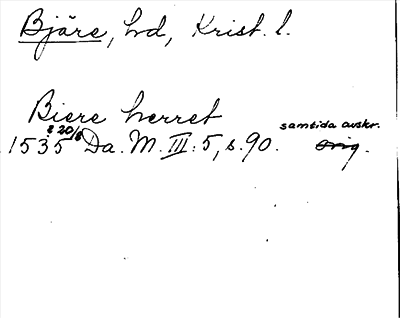 Bjäre, hd, Krist. l.
Biere herret
1535 e 20/8 Da. M. III: 5, s. 90. samtida avskr.
orig.